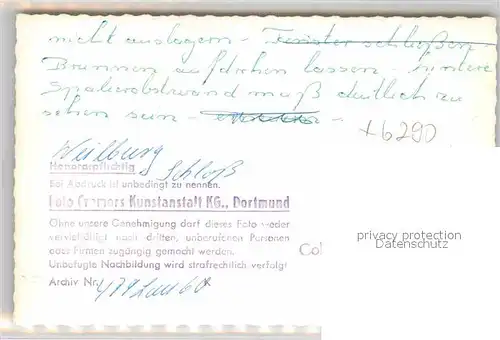 nicht auslagern - Fenster schließen
Brunnen aufdrehen lassen -
Spalierobstwand muß deutlich zu
sehen sein -
+6290
Weilburg
Schloß
Honorarpflichtig
Bei Abdruck ist unbedingt zu nennen.
Foto Cramers Kunstanstalt KG., Dortmund
Ohne unsere Genehmigung darf dieses Foto weder
vervielfältigt noch dritten, unberufenen Personen
oder Firmen zugängig gemacht werden.
Unbefugte Nachbildung wird strafrechtlich verfolgt
Archiv Nr.
Col
privacy protection
Datenschutz